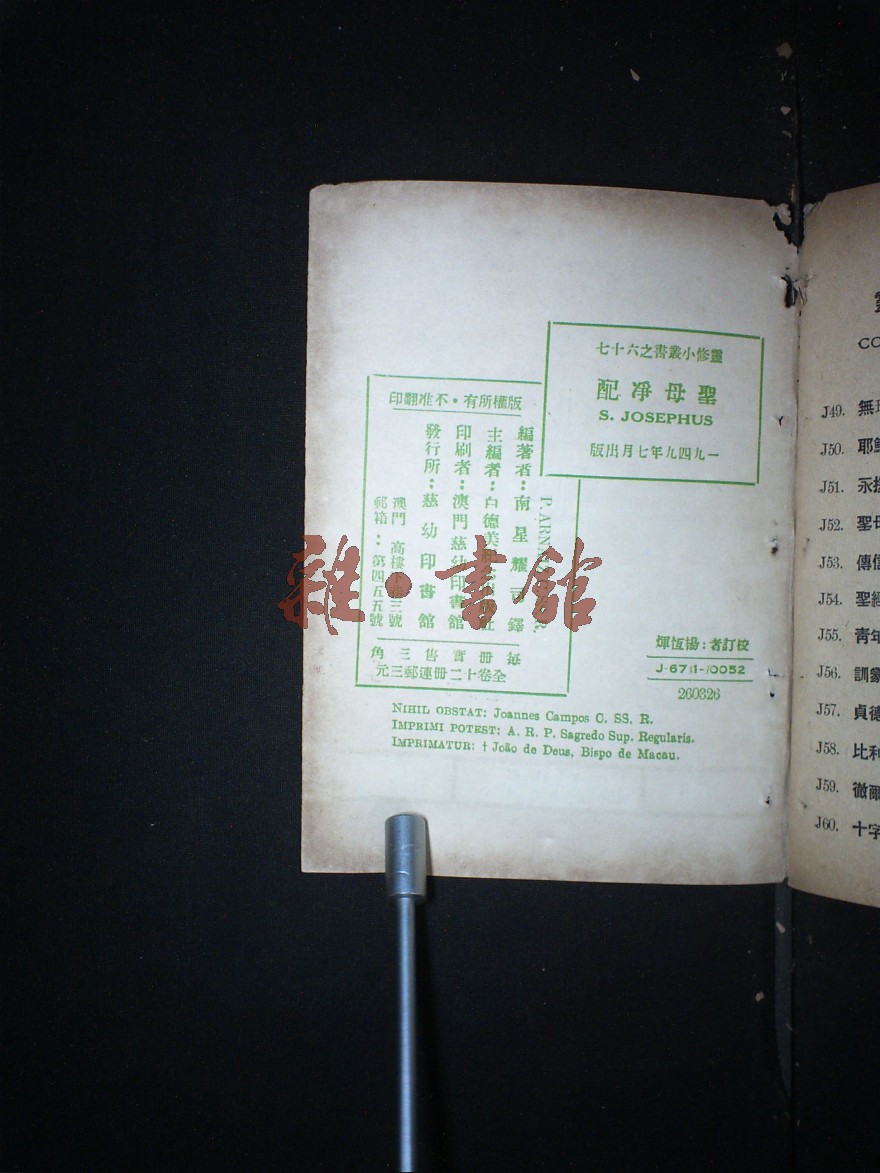 靈修小叢書之六十七
聖母凈配
S. JOSEPHUS
一九四九年七月出版
版權所有・不准翻印
編著者：南星耀司鐸
P. ARN
主編者：白德美
印刷者：澳門慈幼印書館
發行所：慈幼印書館
澳門 高樓 三號
郵箱：第四五五號
每冊實售三角
全卷十二冊連郵三元
校訂者：楊恆煇
J-67|1-/0052
260326
NIHIL OBSTAT: Joannes Campos C. SS. R.
IMPRIMI POTEST: A. R. P. Sagredo Sup. Regularis.
IMPRIMATUR: † João de Deus, Bispo de Macau.
雜・書館
CO
J49. 無
J50. 耶
J51. 永
J52. 聖母
J53. 傳信
J54. 聖經
J55. 青年
J56. 訓蒙
J57. 貞德
J58. 比利
J59. 徹爾
J60. 十字